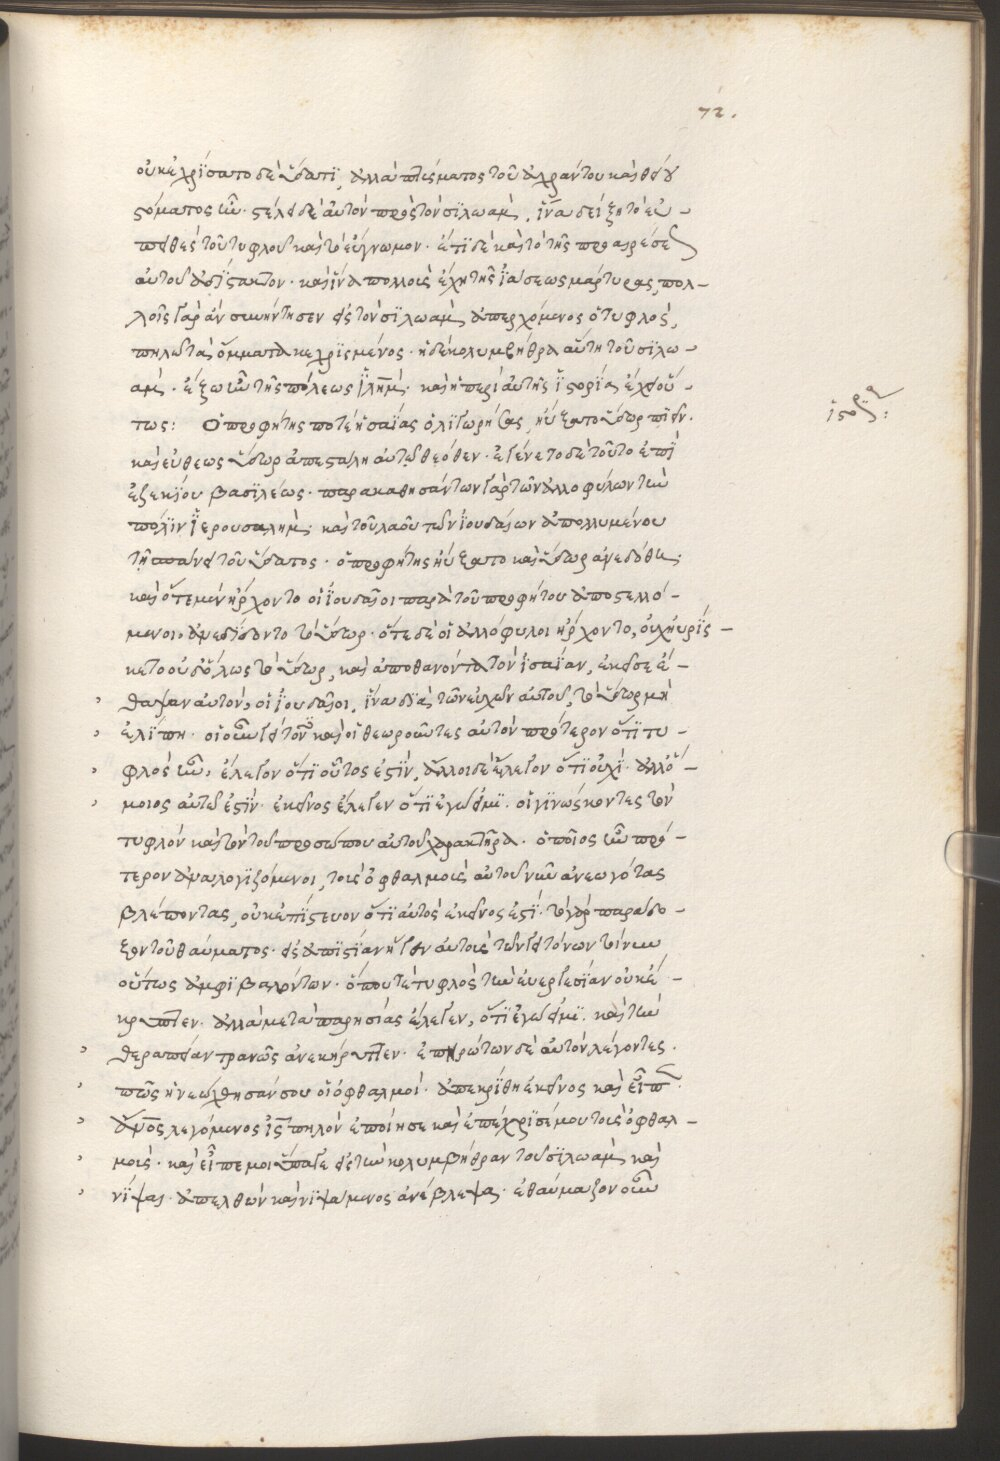 72.
οὐκ ἐχρίσατο δὲ ὕδατϊ, ἀλλὰ πτύσματος τοῦ ἀχράντου καὶ θείου
στόματος ἦν. στέλει δὲ αὐτὸν πρὸς τὸν σϊλωάμ, ἵνα δείξη τὸ εὐ-
πειθὲς τοῦ τυφλοῦ καὶ τὸ εὔγνωμον. ἔτϊ δὲ καὶ τὸ τῆς προαιρέσεως
αὐτοῦ ἀδίστακτον. καὶ ἵνα πολλοὺς ἔχη τῆς ἰάσεως μάρτυρας, πολ-
λοῖς γὰρ ἂν συνήντησεν εἰς τὸν σϊλωὰμ ἀπερχόμενος ὁ τυφλὸς,
πηλῶ τὰ ὄμματα κεχρισμένος. ἡ δὲ κολυμβήθρα αὕτη τοῦ σϊλω-
άμ. ἔξω ἦν τῆς πόλεως ἱλημ. καὶ ἡ περὶ αὐτῆς ἱστορία ἔχει οὕ-
ἱστορία:
τως: Ὁ προφήτης ποτὲ ἡσαΐας ὀλιγωρήσας, ηὔξατο ὕδωρ πιεῖν.
καὶ εὐθέως ὕδωρ ἀπεστάλη αὐτῶ θεόθεν. ἐγένετο δὲ τοῦτο ἐπὶ
ἐξεκίου βασϊλέως. παρακαθησάντων γὰρ τῶν ἀλλοφύλων τὴν
πόλϊν ἱερουσαλήμ. καὶ τοῦ λαοῦ τῶν ἰουδαίων ἀπολλυμένου
τῆ σπάνει τοῦ ὕδατος. ὁ προφήτης ηὔξατο καὶ ὕδωρ ἀνεδόθη.
καὶ ὅτε μὲν ἤρχοντο οἱ ἰουδαῖοι παρὰ τοῦ προφήτου ἀποστελλό-
μενοι, ἀνεδίδοντο τὸ ὕδωρ. ὅτε δὲ οἱ ἀλλόφυλοι ἤρχοντο, οὐχηυρίς-
κετο οὐδόλως τὸ ὕδωρ, καὶ ἀποθανόντα τὸν ἡσαΐαν, ἐκεῖσε ἔ-
θαψαν αὐτὸν, οἱ ἰουδαῖοι, ἵνα διὰ τῶν εὐχῶν αὐτοῦ, τὸ ὕδωρ μὴ
ἐλίπη. οἱ οὖν γείτονες καὶ οἱ θεωροῦντες αὐτὸν πρότερον ὅτι τυ-
φλὸς ἦν, ἔλεγον ὅτϊ οὗτος ἐστϊν, ἄλλοι δὲ ἔλεγον ὅτϊ οὐχὶ. ἀλλ' ὅ-
μοιος αὐτῶ ἐστϊν. ἐκεῖνος ἔλεγεν ὅτϊ ἐγώ εἰμϊ. οἱ γϊνώσκοντες τὸν
τυφλὸν καὶ τὸν τοῦ προσώπου αὐτοῦ χαρακτῆρα. ὁποῖος ἦν πρό-
τερον ἀναλογϊζόμενοι, τοὺς ὀφθαλμοὺς αὐτοῦ νῦν ἀνεωγότας
βλέποντας, οὐκ ἐπίστευον ὅτϊ αὐτὸς ἐκεῖνος ἐστϊ. τὸ γὰρ παράδο-
ξον τοῦ θαύματος. εἰς ἀπιστίαν ἦγεν αὐτοὺς τῶν γειτόνων τϊνων
οὕτως ἀμφιβαλόντων. ὁπουτε τυφλὸς τὴν εὐεργεσίαν οὐκ ἔ-
κρυπτεν. ἀλλὰ μετὰ παρησίας ἔλεγεν, ὅτϊ ἐγώ εἰμϊ. καὶ τὴν
θεραπείαν τρανῶς ἀνεκήρυττεν. ἐπηρώτων δὲ αὐτὸν λέγοντες.
πῶς ἠνεώχθησάν σου οἱ ὀφθαλμοί. ἀπεκρίθη ἐκεῖνος καὶ εἶπεν.
ἄνος λεγόμενος ἰς πηλὸν ἐποίησε καὶ ἐπέχρισέ μου τοὺς ὀφθαλ-
μοὺς. καὶ εἶπέ μοι ὕπαγε εἰς τὴν κολυμβήθραν τοῦ σϊλωὰμ καὶ
νίψαι. ἀπελθὼν καὶ νϊψάμενος ἀνέβλεψα. ἐθαύμαζον οὖν